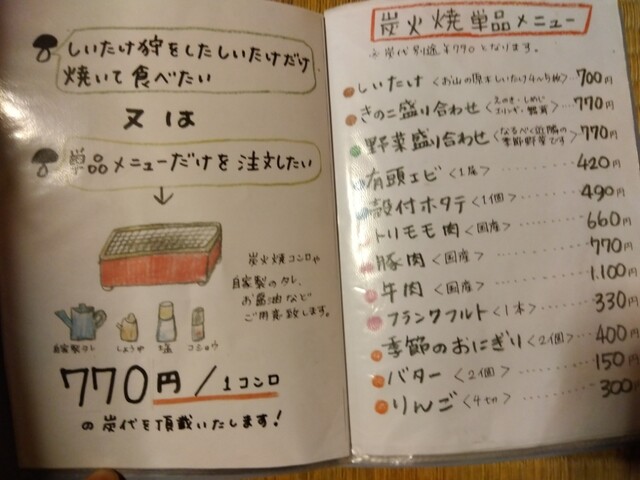 しいたけ狩をしたしいたけだけ
焼いて食べたい
又は
単品メニューだけを注文したい
炭火焼コンロや
自家製のタレ、
お醤油など
ご用意致します。
自家製タレ しょうゆ 塩 コショウ
770円/1コンロ
の炭代を頂戴いたします!
炭火焼単品メニュー
※炭代別途¥770となります。
しいたけ〈お山の原木しいたけ4〜5枚〉 700円
きのこ盛り合わせ〈えのき・しめじ エリンギ・舞茸〉…770円
野菜盛り合わせ〈なるべく近隣の 季節野菜です〉770円
有頭エビ〈1尾〉……420円
殻付ホタテ〈1個〉……490円
トリモモ肉〈国産〉……660円
豚肉〈国産〉……770円
牛肉〈国産〉……1.100円
フランクフルト〈1本〉……330円
季節のおにぎり〈2個〉……400円
バター〈2個〉……150円
りんご〈4切〉……300円